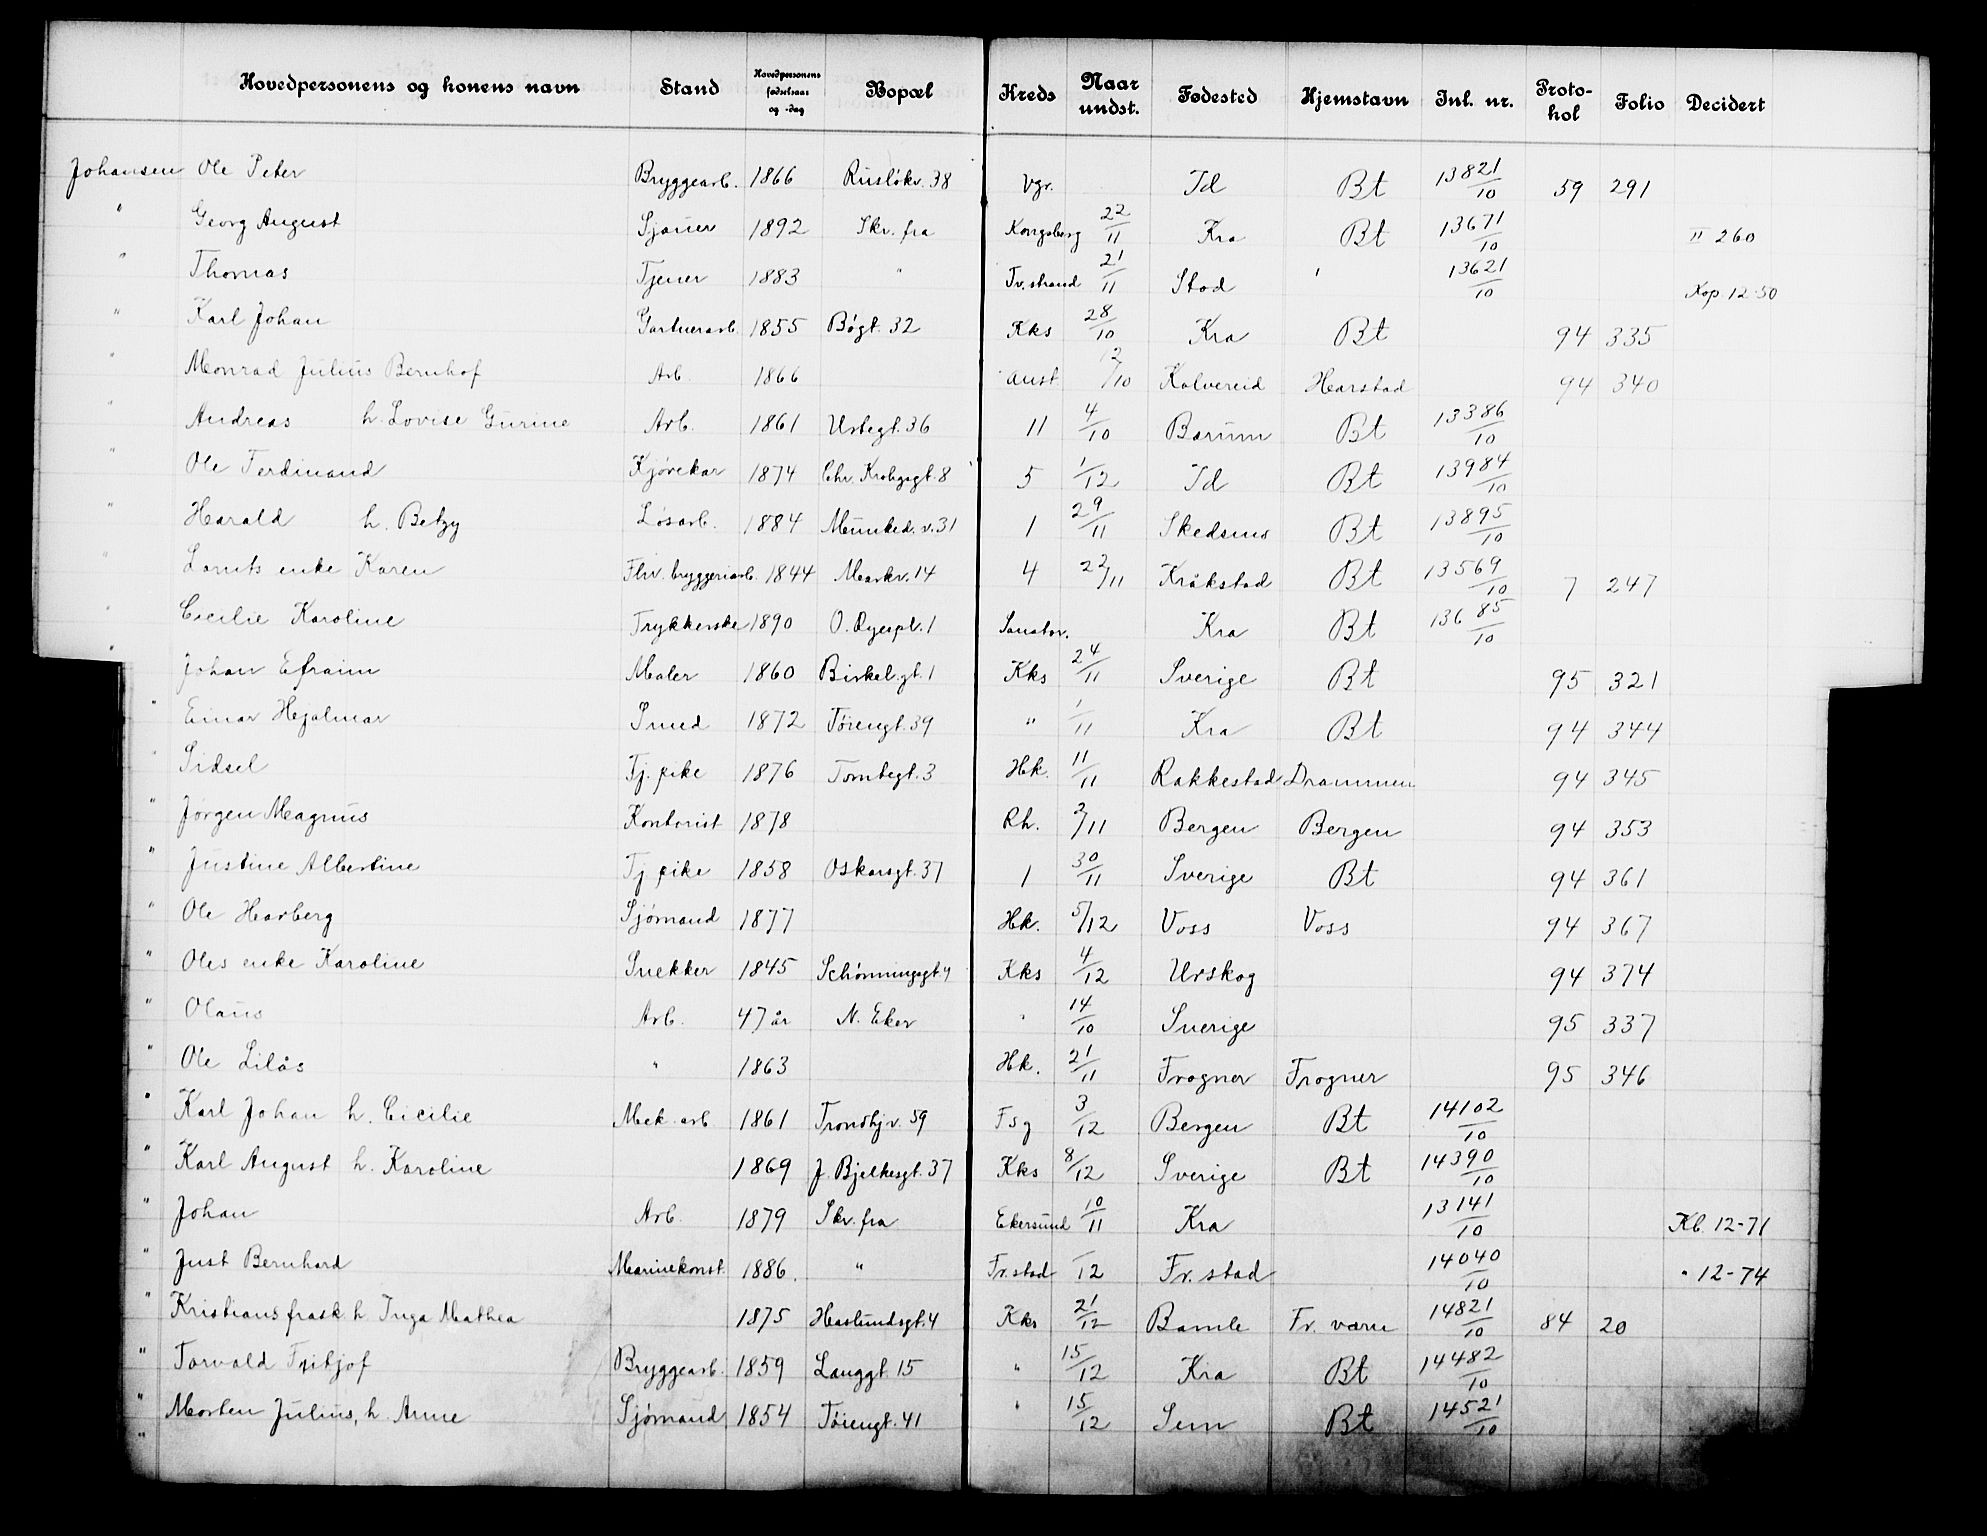 Hovedpersonens og konens navn Stand Hovedpersonens fødselsaar og -dag Bopæl Kreds Naar undst. Fødested Hjemstavn Inl. nr. Protokol Folio Decidert
Johansen Ole Peter Bryggearb. 1866 Rusløkv. 38 Vgr. Id Bt 13821/10 59 291
" Georg August Sjauer 1892 Skr. fra Kongsberg 22/11 Kra Bt 13671/10 II 260
" Thomas Tjener 1883 " Tv.strand 21/11 Stod ' 13621/10 Kop. 12-50
" Karl Johan Gartnerarb. 1855 Bøgt. 32 Kks 28/10 Kra Bt 94 335
" Monrad Julius Bernhof Arb. 1866 aust. /10 Kolvereid Harstad 94 340
" Andreas h. Lovise Gurine Arb. 1861 Urtegt. 36 11 4/10 Bærum Bt 13386/10
" Ole Ferdinand Kjørekar 1874 Chr. Krohgsgt. 8 5 1/12 Id Bt 13984/10
" Harald h. Betzy Løsarb. 1884 Munked.v. 31 1 29/11 Skedsmo Bt 13895/10
" Lauits enke Karen Fhv. bryggeriarb. 1844 Markv. 14 4 22/11 Kråkstad Bt 13569/10 7 247
" Cecilie Karoline Trykkerske 1890 O. Ryespl. 1 Sanator. Kra Bt 13685/10
" Johan Efraim Maler 1860 Birkel.gt. 1 Kks 24/11 Sverige Bt 95 321
" Einar Hejalmar Smed 1872 Tøiengt. 39 " 1/11 Kra Bt 94 344
" Sidsel Tj. pike 1876 Tomtegt. 3 Hk. 11/11 Rakkestad Drammen 94 345
" Jørgen Magnus Kontorist 1878 Rh. 3/11 Bergen Bergen 94 353
" Justine Albertine Tj. pike 1858 Oskarsgt. 37 1 30/11 Sverige Bt 94 361
" Ole Harberg Sjømand 1877 Hk. 5/12 Voss Voss 94 367
" Oles enke Karoline Snekker 1845 Schønningsgt. 4 Kks 4/12 Urskog 94 374
" Olaus Arb. 47 år N. Eker " 14/10 Sverige 95 337
" Ole Lilås " 1863 Hk. 21/11 Frogner Frogner 95 346
" Karl Johan h. Cicilie Mek. arb. 1861 Trondhj.v. 59 Fsg 3/12 Bergen Bt 14102/10
" Karl August h. Karoline 1869 J. Bjelkesgt. 37 Kks 8/12 Sverige Bt 14390/10
" Johan Arb. 1879 Skr. fra Ekersund 10/11 Kra 13141/10 Kb. 12-71
" Just Bernhard Marinekonst. 1886. " Fr.stad 12 Fr.stad 14040/10 " 12-74
" Kristians frask. h. Inga Mathea 1875 Haslundsgt. 4 Kks 21/12 Bamle Fr. værn 14821/10 84 20
" Torvald Fritjof Bryggearb. 1859 Langgt. 15 " 15/12 Kra Bt 14482/10
" Morten Julius, h. Anne Sjømand 1854 Tøiengt. 41 " 15/12 Sem Bt 14521/10
"